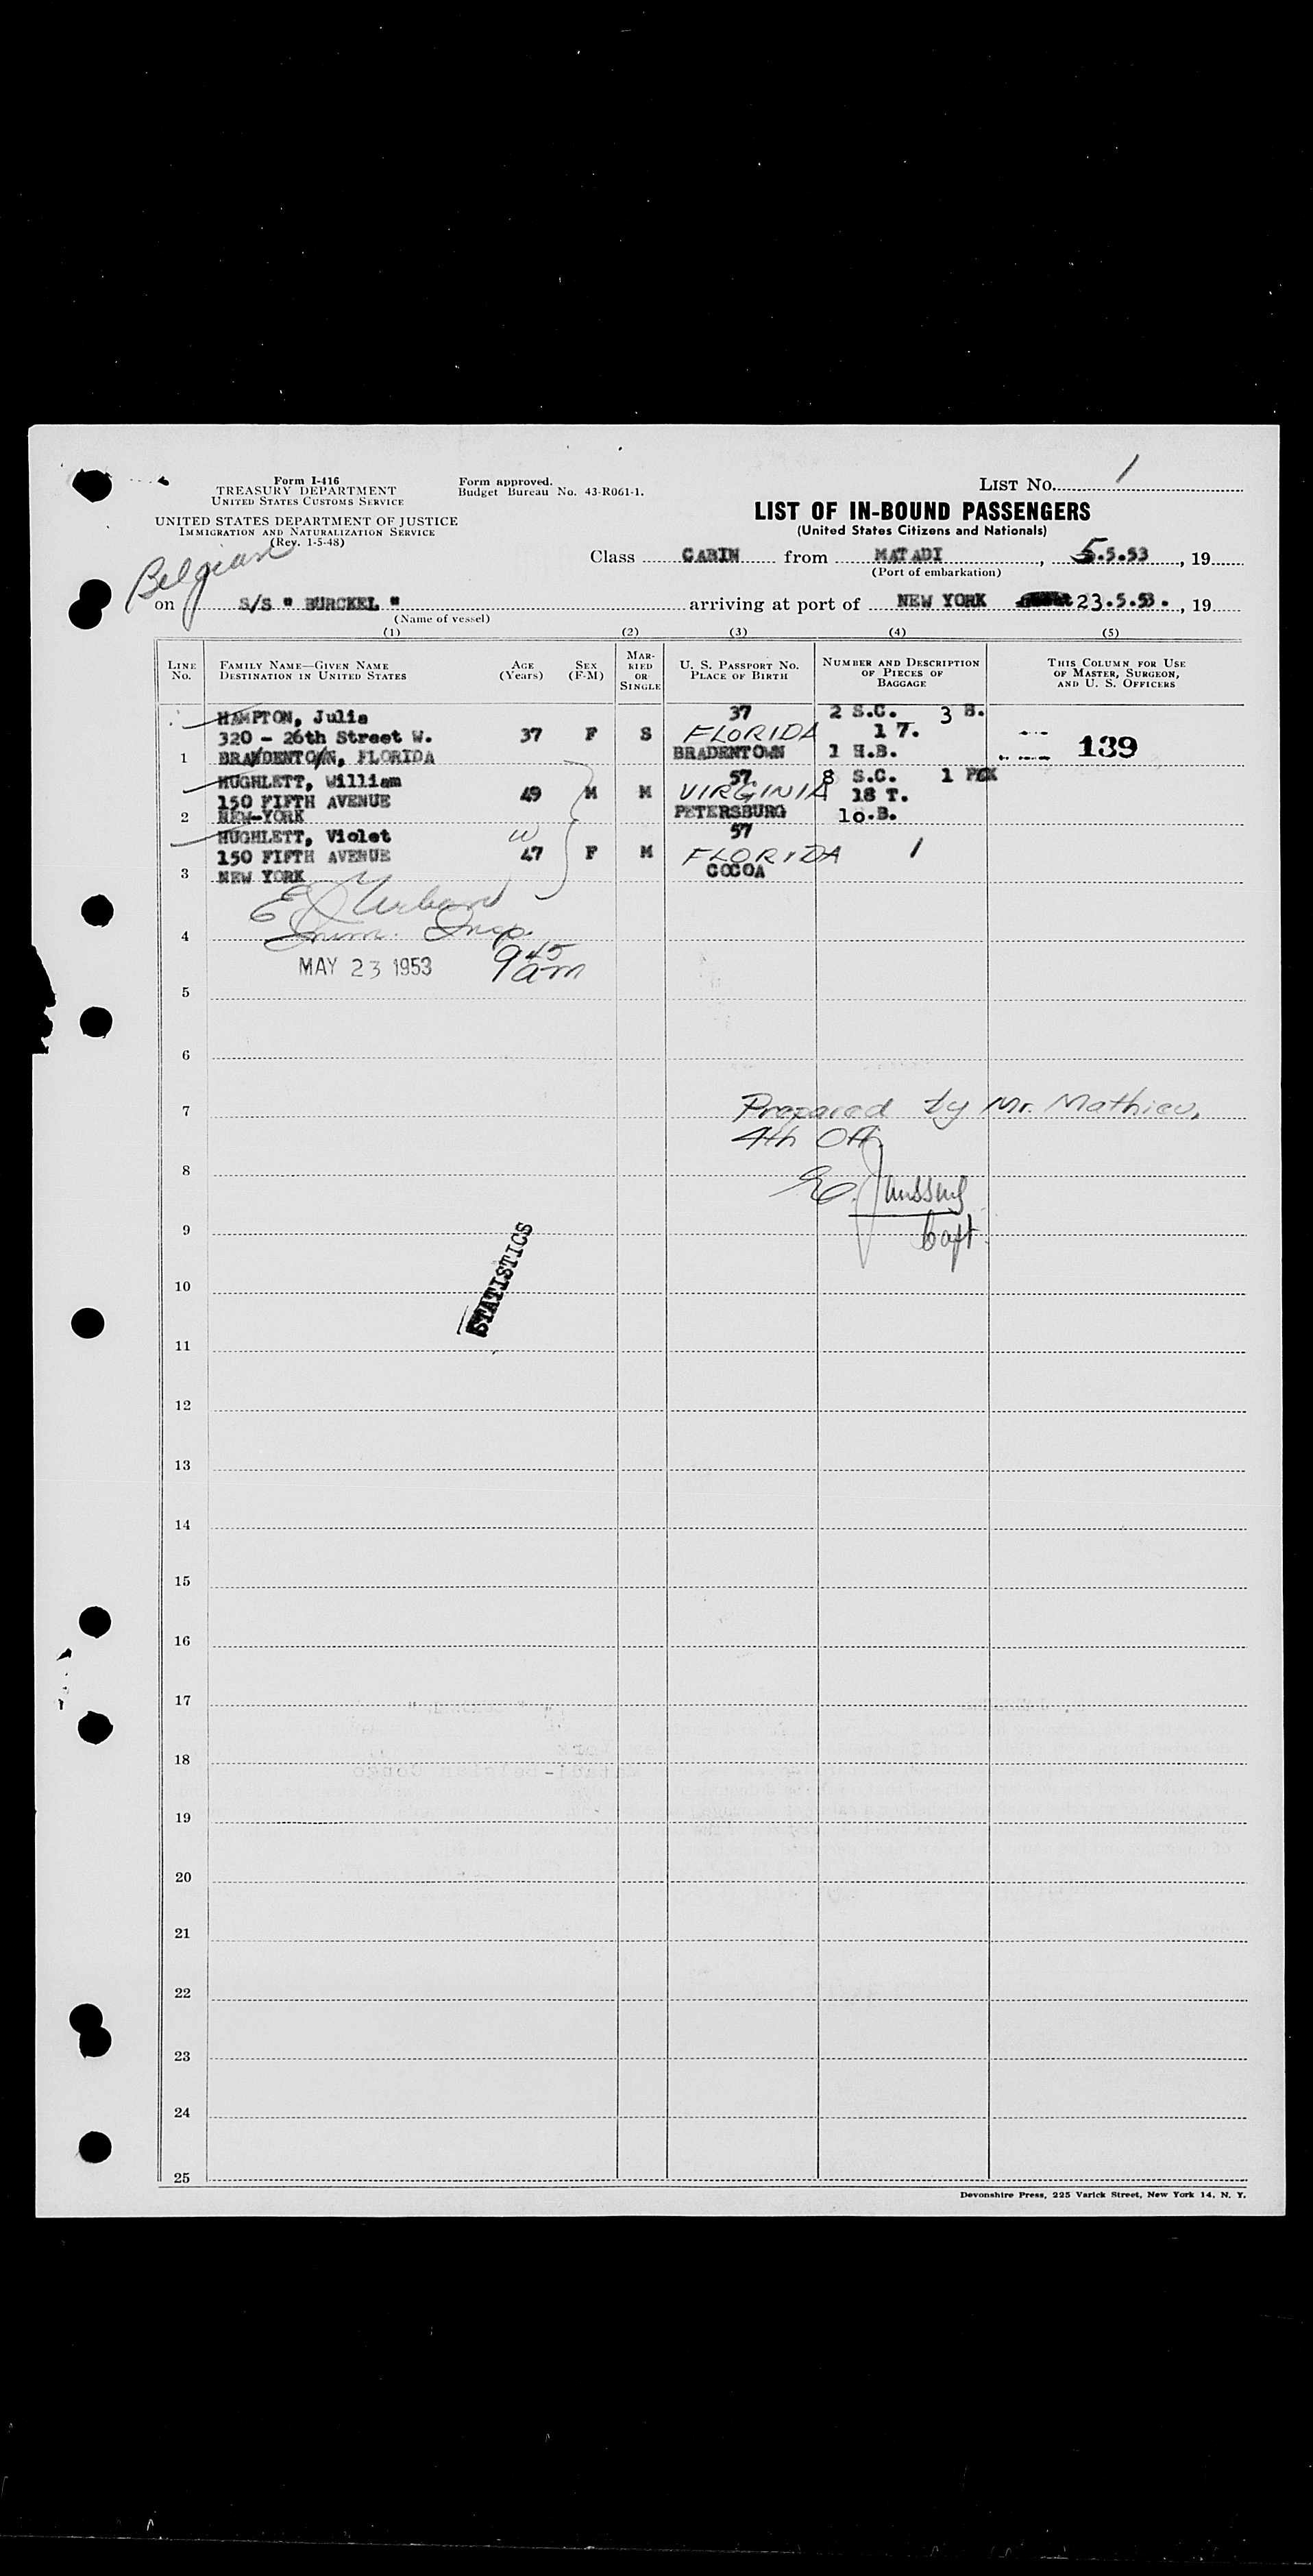 Form I-416
TREASURY DEPARTMENT
UNITED STATES CUSTOMS SERVICE
UNITED STATES DEPARTMENT OF JUSTICE
IMMIGRATION AND NATURALIZATION SERVICE
(Rev. 1-5-48)
Form approved.
Budget Bureau No. 43-R061-1.
LIST NO. 1
LIST OF IN-BOUND PASSENGERS
(United States Citizens and Nationals)
Belgian
Class CABIN from MATADI, 5.5.53, 19
(Port of embarkation)
on S/S " BURCKEL " arriving at port of NEW YORK 23.5.53., 19
(Name of vessel)
(1) (2) (3) (4) (5)
LINE NO.
FAMILY NAME—GIVEN NAME
DESTINATION IN UNITED STATES
AGE (Years)
SEX (F-M)
MARRIED OR SINGLE
U. S. PASSPORT NO.
PLACE OF BIRTH
NUMBER AND DESCRIPTION OF PIECES OF BAGGAGE
THIS COLUMN FOR USE OF MASTER, SURGEON, AND U. S. OFFICERS
HAMPTON, Julia 37 2 S.C. 3 B.
320 - 26th Street W. 37 F S FLORIDA 1 T.
1 BRADENTOWN, FLORIDA BRADENTOWN 1 H.B. 139
HUGHLETT, William 57. 8 S.C. 1 PCK
150 FIFTH AVENUE 49 M M VIRGINIA 18 T.
2 NEW-YORK PETERSBURG 10.B.
HUGHLETT, Violet W 57
150 FIFTH AVENUE 47 F M FLORIDA 1
3 NEW YORK COCOA
4 Imm. Insp.
MAY 23 1953 9 45 am
5
6
7 Prepared by Mr. Mathieu,
4th Off.
8 Janssens
9 Capt.
STATISTICS
10
11
12
13
14
15
16
17
18
19
20
21
22
23
24
25
Devonshire Press, 225 Varick Street, New York 14, N. Y.